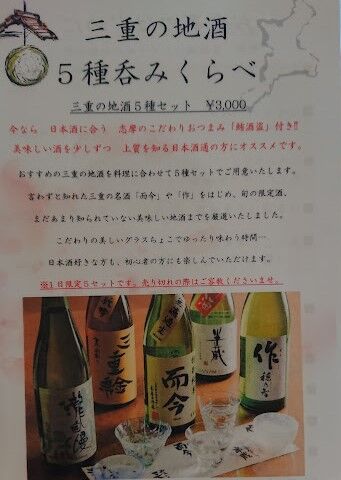 三重の地酒
5種呑みくらべ
三重の地酒5種セット ¥3,000
今なら 日本酒に合う 志摩のこだわりおつまみ「鮪酒盗」付き!!
美味しい酒を少しずつ 上質を知る日本酒通の方にオススメです。
おすすめの三重の地酒を料理に合わせて5種セットでご用意いたします。
言わずと知れた三重の名酒「而今」や「作」をはじめ、旬の限定酒、
まだあまり知られていない美味しい地酒までを厳選いたしました。
こだわりの美しいグラスちょこでゆったり味わう時間…
日本酒好きな方も、初心者の方にも楽しんでいただけます。
※1日限定5セットです。売り切れの際はご容赦くださいませ。
瀧自慢
三重錦
而今
半蔵
作
穂乃智